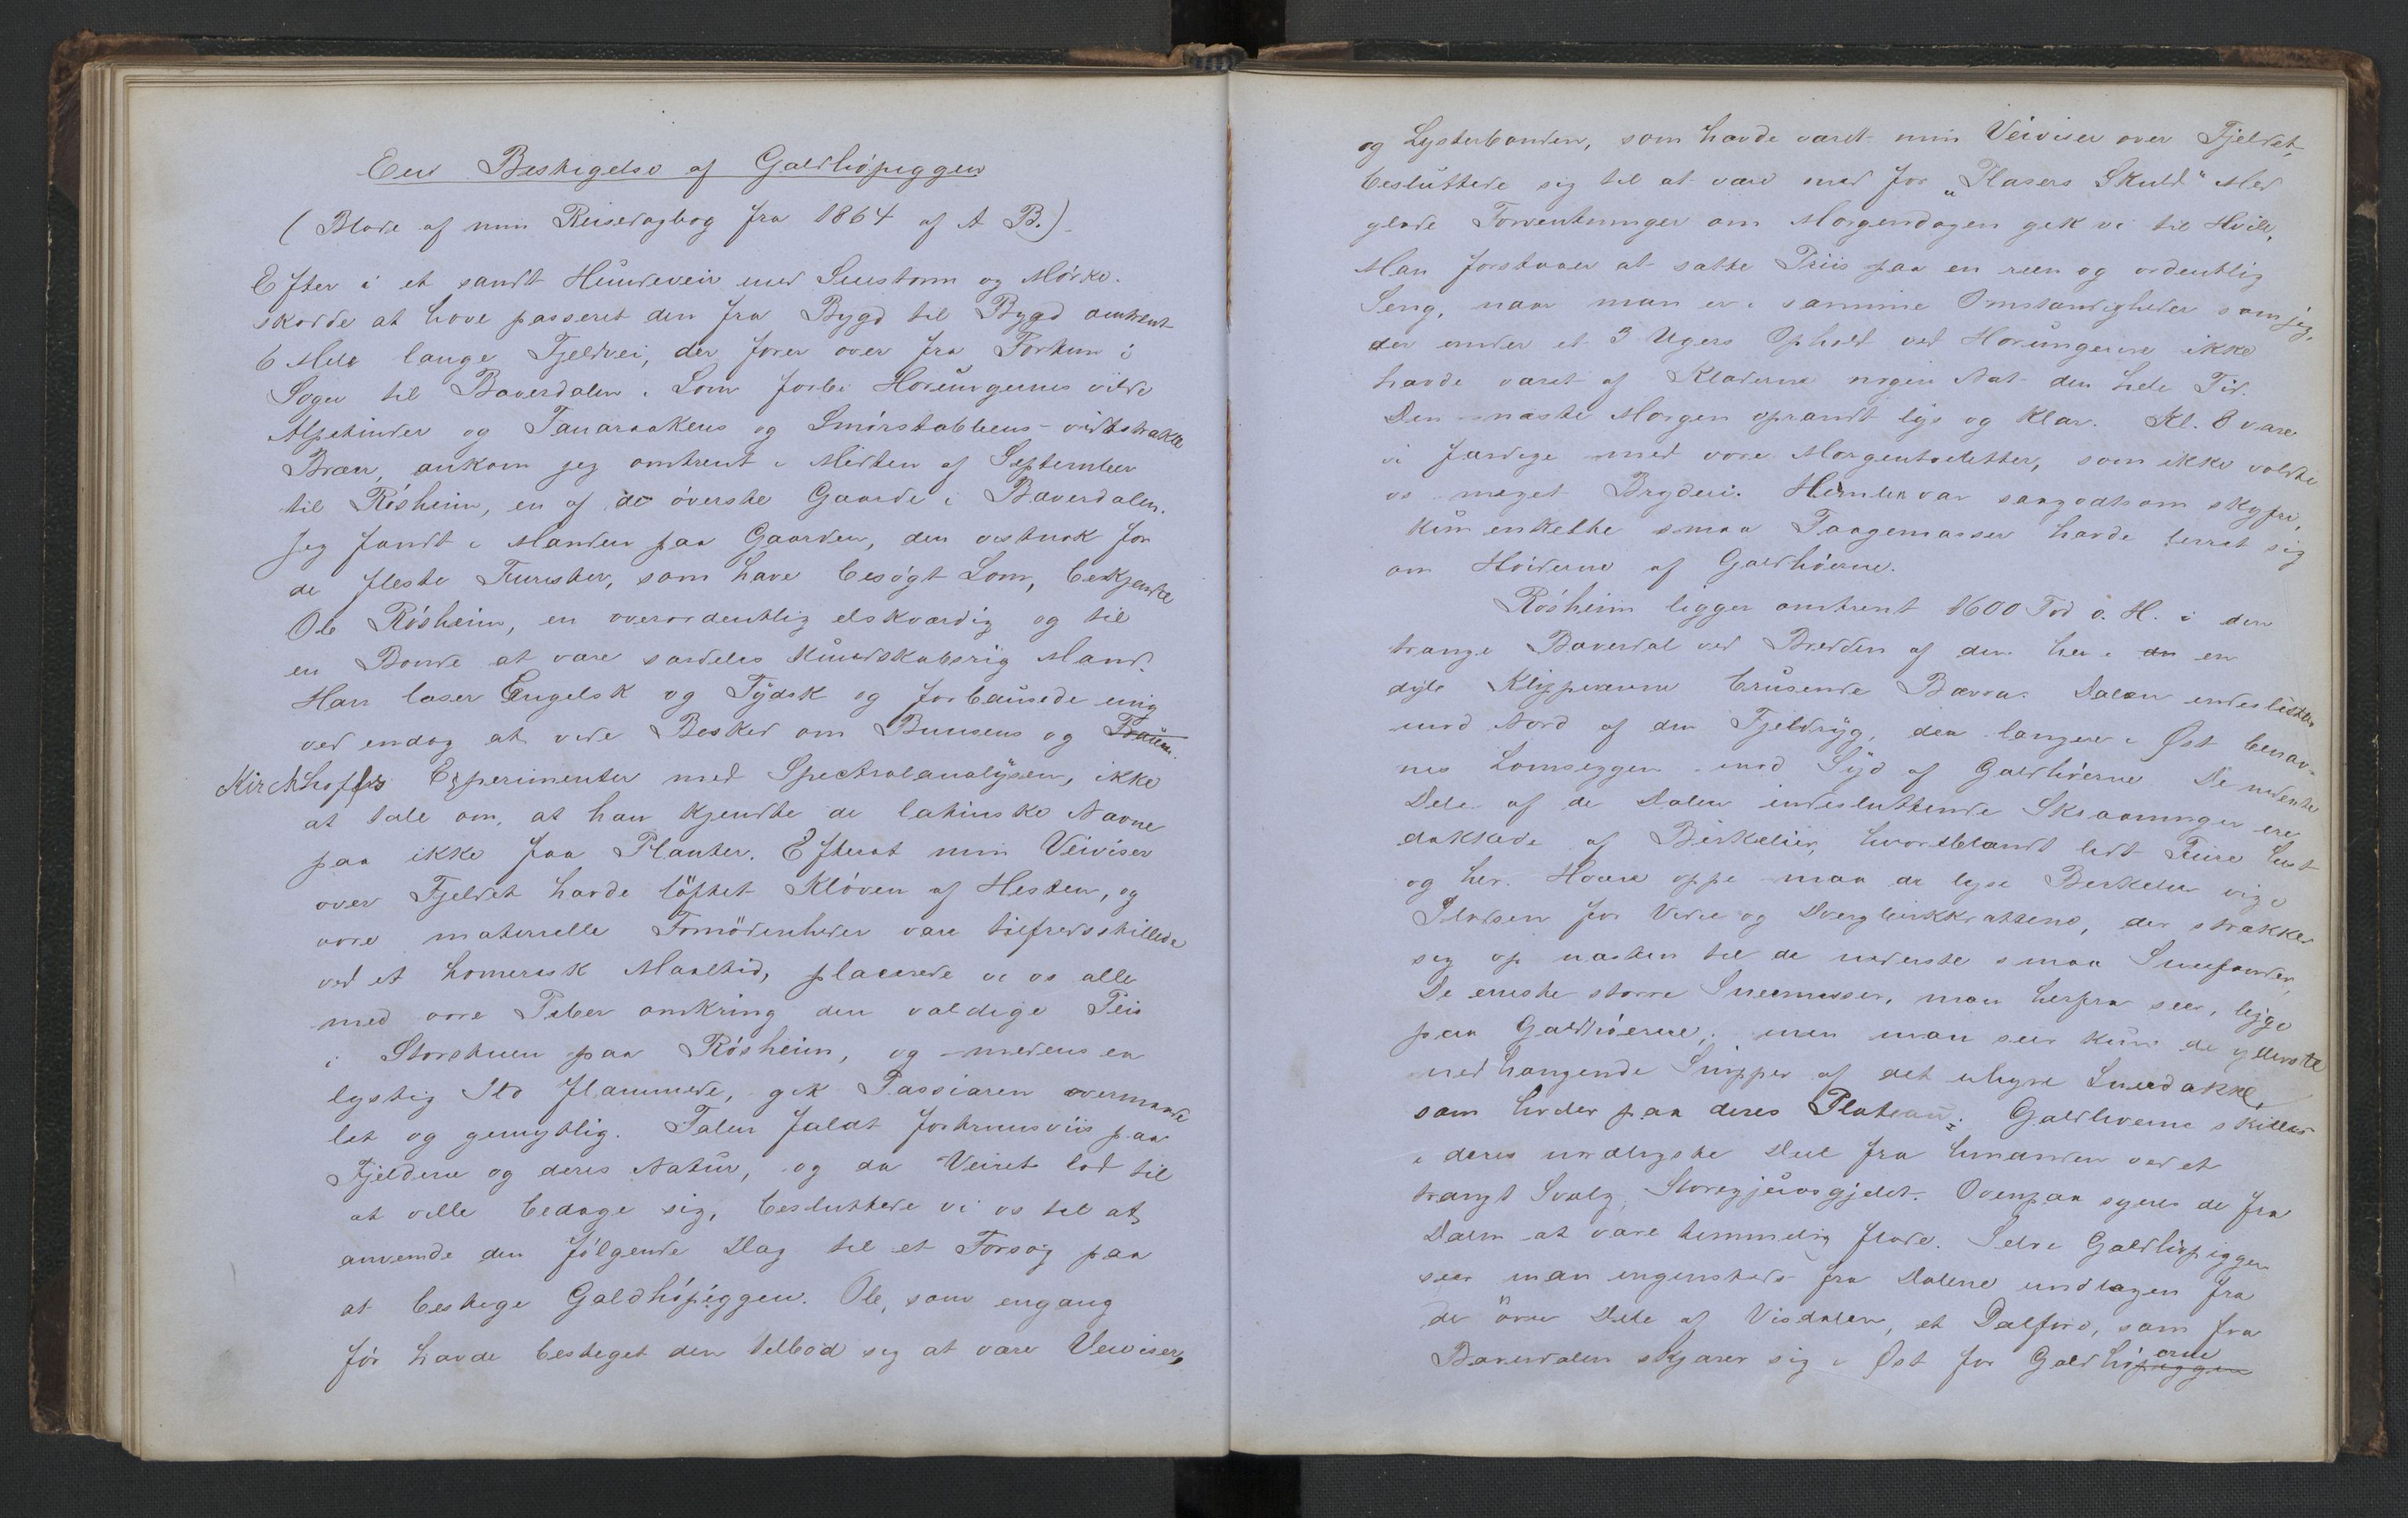 En Bestigelse af Galdhöpiggen
(Blade af min Reisedagbog fra 1864 af A B.)
Efter i et sandt Hundeveir med Sneestorm og Mörke.
skodde at have passeret den fra Bygd til Bygd omtrent
6 Mile lange Fjeldvei, der förer over fra Fortun i
Sogn til Bæverdalen i Lom forbi Horungernes vilde
Alpetinder og Fanaraakens og Smörstabbens vidtstrakte
Bræer, ankom jeg omtrent i Midten af September
til Rösheim, en af de överste Gaarde i Bæverdalen.
Jeg fandt i Manden paa Gaarden, den vistnok for
de fleste Turister, som have besögt Lom, bekjendte
Ole Rösheim, en overordentlig elskværdig og til
en Bonde at være særdeles kundskabsrig Mand.
Han læser Engelsk og Tydsk og forbausede mig
ved endog at vide Besked om Bunsens og
Kirchhoffs Experimenter med Spectralanalysen, ikke
at tale om, at han kjendte de latinske Navne
paa ikke faa Planter. Efterat min Veiviser
over Fjeldet havde löftet Klöven af Hesten, og
vore materielle Fornödenheder vare tilfredsstillede
ved et homerisk Maaltid, placerede vi os alle
med vore Piber omkring den vældige Peis
i Storstuen paa Rösheim, og medens en
lystig Ild flammede, gik Passiaren overmaade
let og gemytlig. Talen faldt fortrinsviis paa
Fjeldene og deres Natur, og da Veiret lod til
at ville bedage sig, besluttede vi os til at
anvende den fölgende Dag til et Forsög paa
at bestige Galdhöpiggen. Ole, som engang
för havde besteget den tilböd sig at være Veiviser,
og Lysterbonden, som havde været min Veiviser over Fjeldet,
besluttede sig til at være med for „Plasers Skuld" Med
glade Forventninger om Morgendagen gik vi til Hvile,
Man forstaaer at sætte Priis paa en reen og ordentlig
Seng, naar man er i samme Omstændigheder som jeg,
der under et 3 Ugers Ophold ved Horungerne ikke
havde været af Klæderne nogen Nat den hele Tid.
Den næste Morgen oprandt lys og klar. Kl. 8 vare
vi færdige med vore Morgentoiletter, som ikke voldte
os meget Bryderi. Himlen var saagodtsom skyfri,
kun enkelte smaa Taagemasser havde leiret sig
om Höiderne af Galdhöerne.
Rösheim ligger omtrent 1600 Fod o. H. i den
trange Bæverdal ved Bredden af den her i en
dyb Klipperende brusende Bævra. Dalen indesluttes
mod Nord af den Fjeldryg, der længere i Øst benæv-
nes Lomseggen mod Syd af Galdhöerne. De nederste
Dele af de Dalen indesluttende Skraaninger ere
dækkede af Birkelier, hvoriblandt lidt Furu hist
og her. Höiere oppe maa de lyse Birkelier vige
Pladsen for Vidie og Dvergbirkkrattene, der strækker
sig op næsten til de nederste smaa Sneefonder,
De eneste större Sneemasser, man herfra seer, ligge
paa Galdhöerne; men man seer kun de yderste
nedhængende Snipper af det uhyre Sneedække,
som hviler paa deres Plateau. Galdhöerne skilles
i deres nordligste Deel fra hinanden ved et
trangt Svælg, Storegjuvsgjelet. Ovenpaa synes de fra
Dalen at være temmelig flade. Selve Galdhöpiggen
seer man ingensteds fra Dalene undtagen fra
de övre Dele af Visdalen, et Dalföre, som fra
Bæverdalen skjærer sig i Øst for Galdhöpiggen
erne